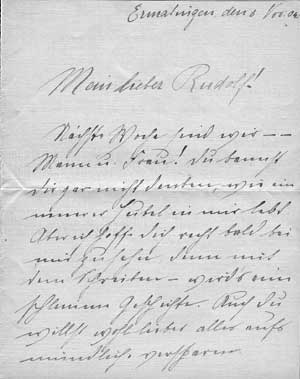 Ermatingen, den 8 Nov. 04
Mein lieber Rudolf!
Nächste Woche sind wir - -
Mann u. Frau! Du kannst
dir gar nicht denken, wie ein
innerer Jubel in mir lebt
Aber ich hoff dich recht bald bei
mir zu sehn, denn mit
dem Schreiben - wirds eine
schlimme Geschichte. Auch du
willst wohl lieber alles aufs
mündliche versparen